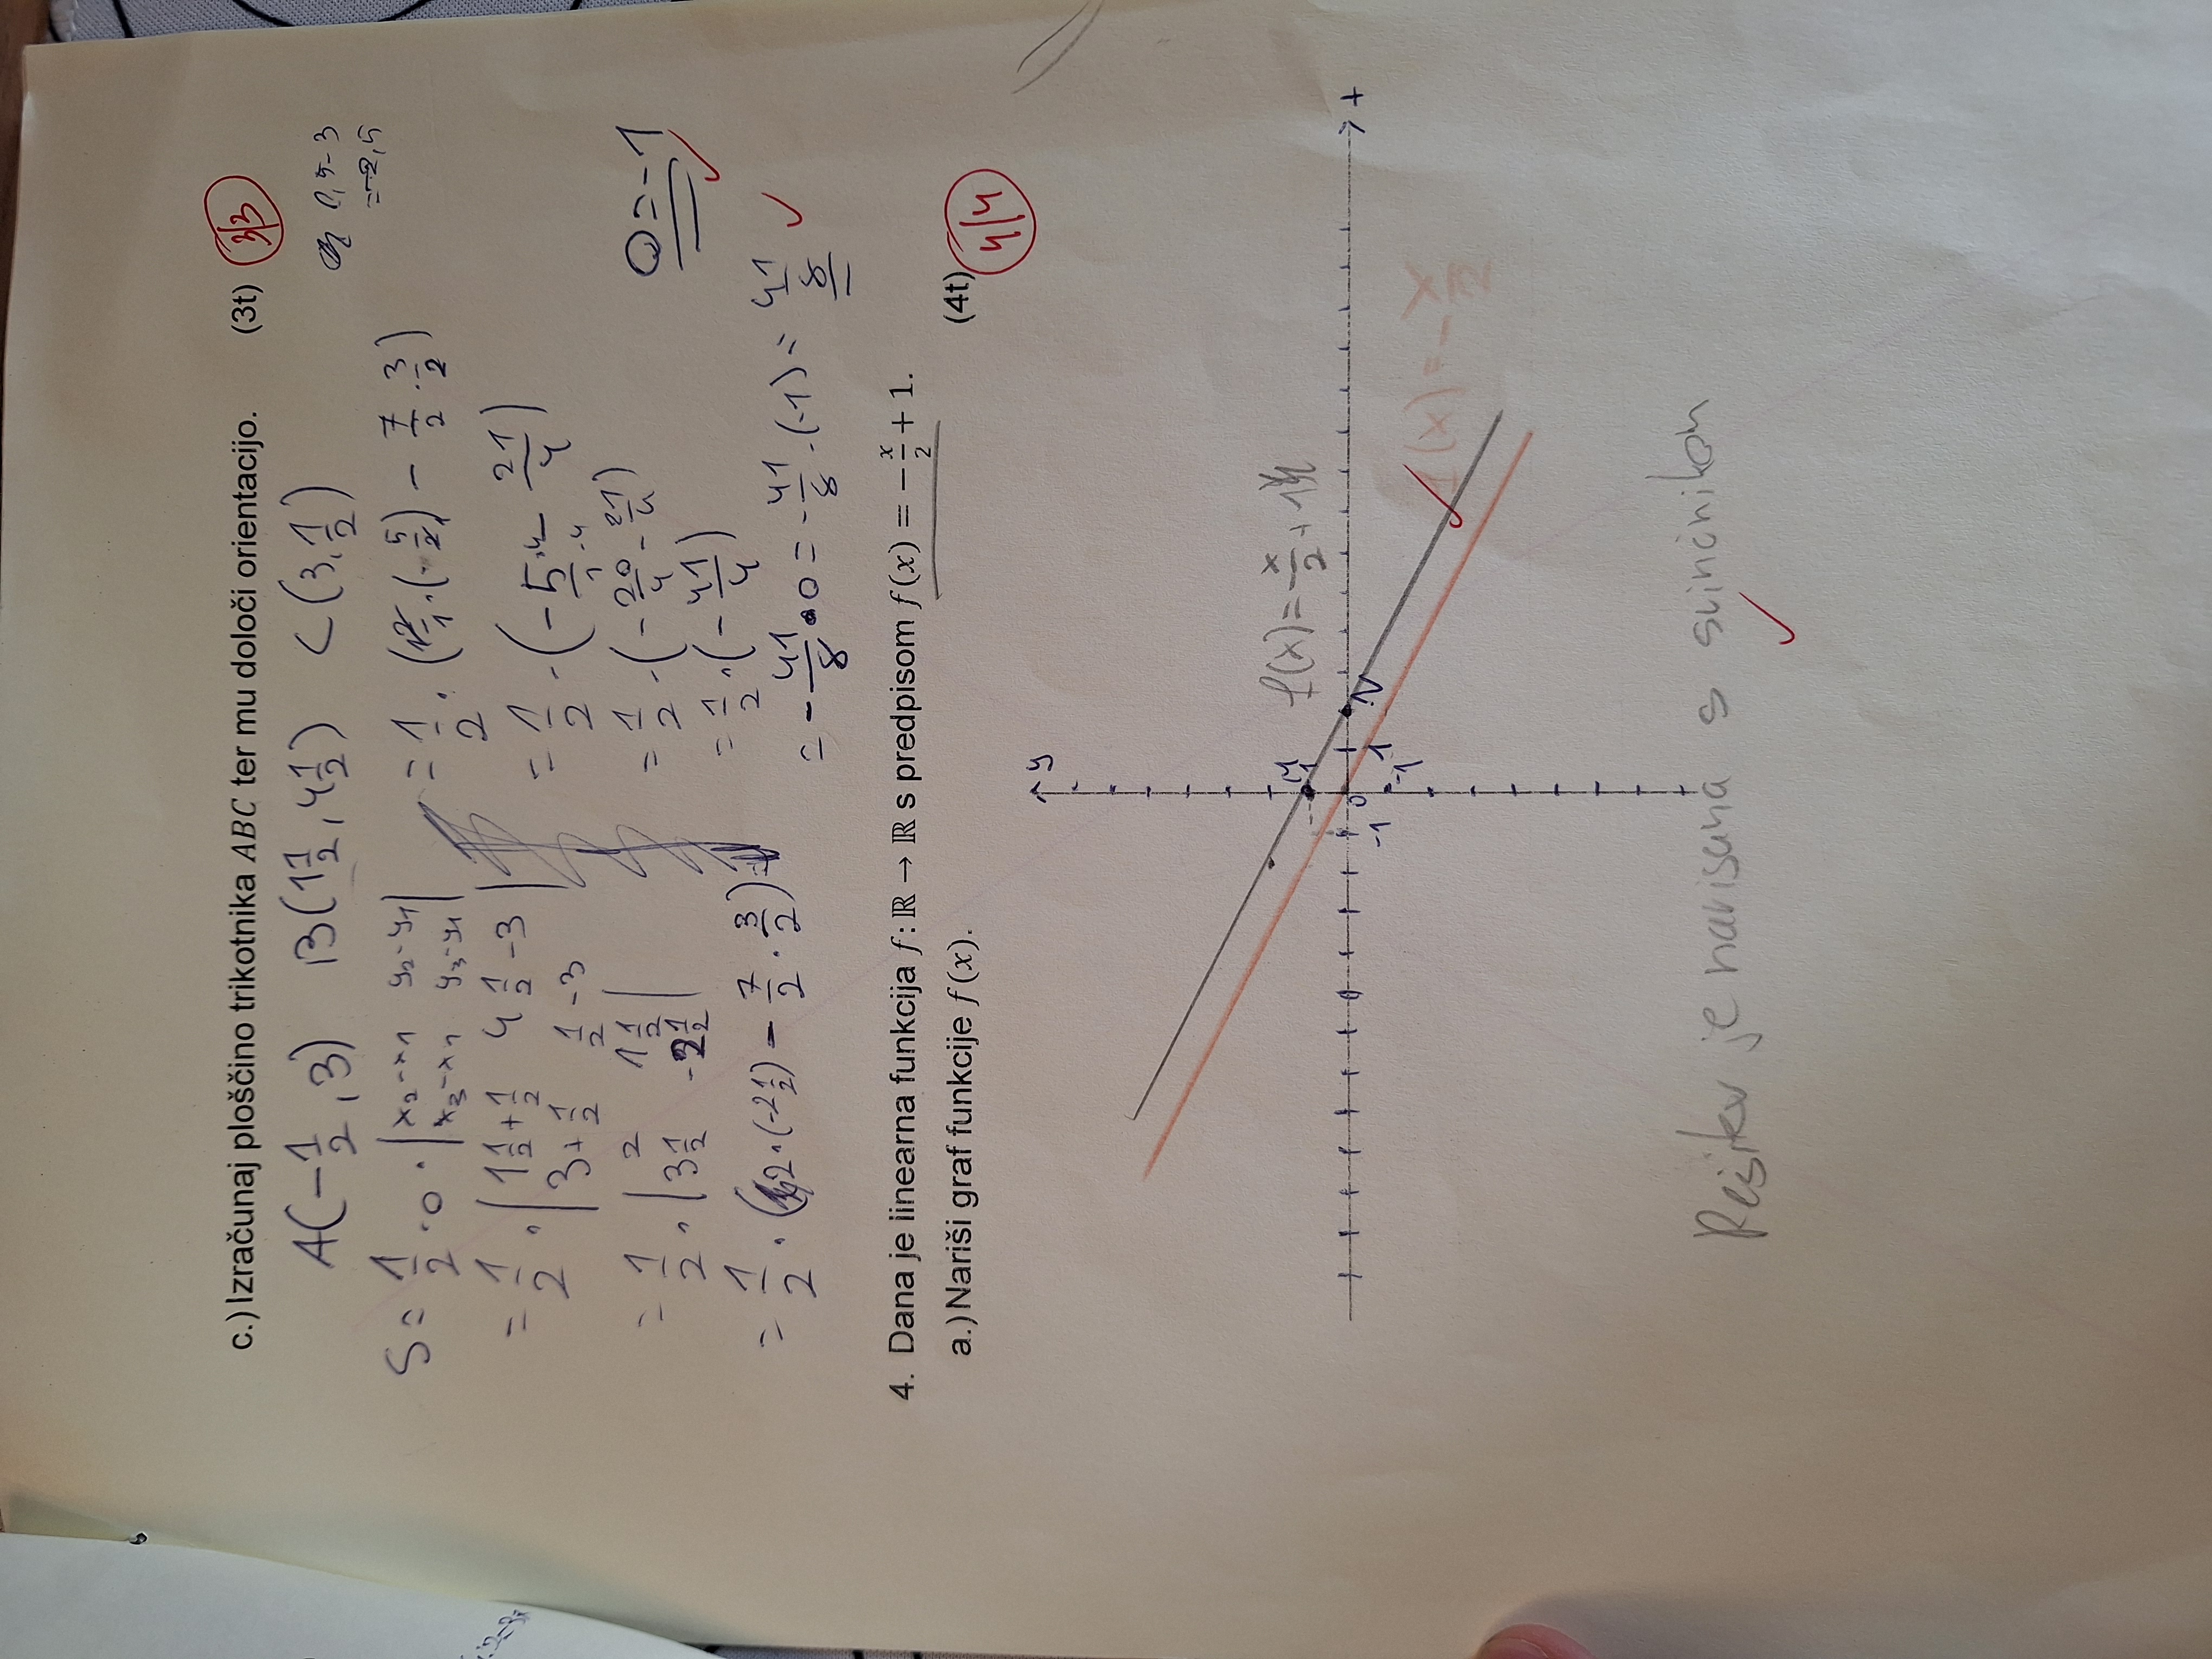 c.) Izračunaj ploščino trikotnika ABC ter mu določi orientacijo. (3t) 3/3
A(-1/2, 3) B(1 1/2, 4 1/2) C(3, 1/2)
0,5-3
=-2,5
S = 1/2 · o · | x2-x1 y2-y1 |
| x3-x1 y3-y1 |
= 1/2 · | 1 1/2 + 1/2 4 1/2 - 3 |
| 3 + 1/2 1/2 - 3 |
= 1/2 · | 2 1 1/2 |
| 3 1/2 -2 1/2 |
= 1/2 · ( 2 · (-2 1/2) - 7/2 · 3/2 ) =
= 1/2 · ( 2/1 · (-5/2) - 7/2 · 3/2 )
= 1/2 · ( -5·4/1·4 - 21/4 )
= 1/2 · ( -20/4 - 21/4 )
= 1/2 · ( -41/4 )
= -41/8 · o = -41/8 · (-1) = 41/8
O = -1
4. Dana je linearna funkcija f: ℝ → ℝ s predpisom f(x) = -x/2 + 1.
a.) Nariši graf funkcije f(x). (4t) 4/4
y
f(x) = -x/2 + 1
M
1
0
-1 1 N
-1
f(x) = -x/2
Rešitev je narisana s svinčnikom